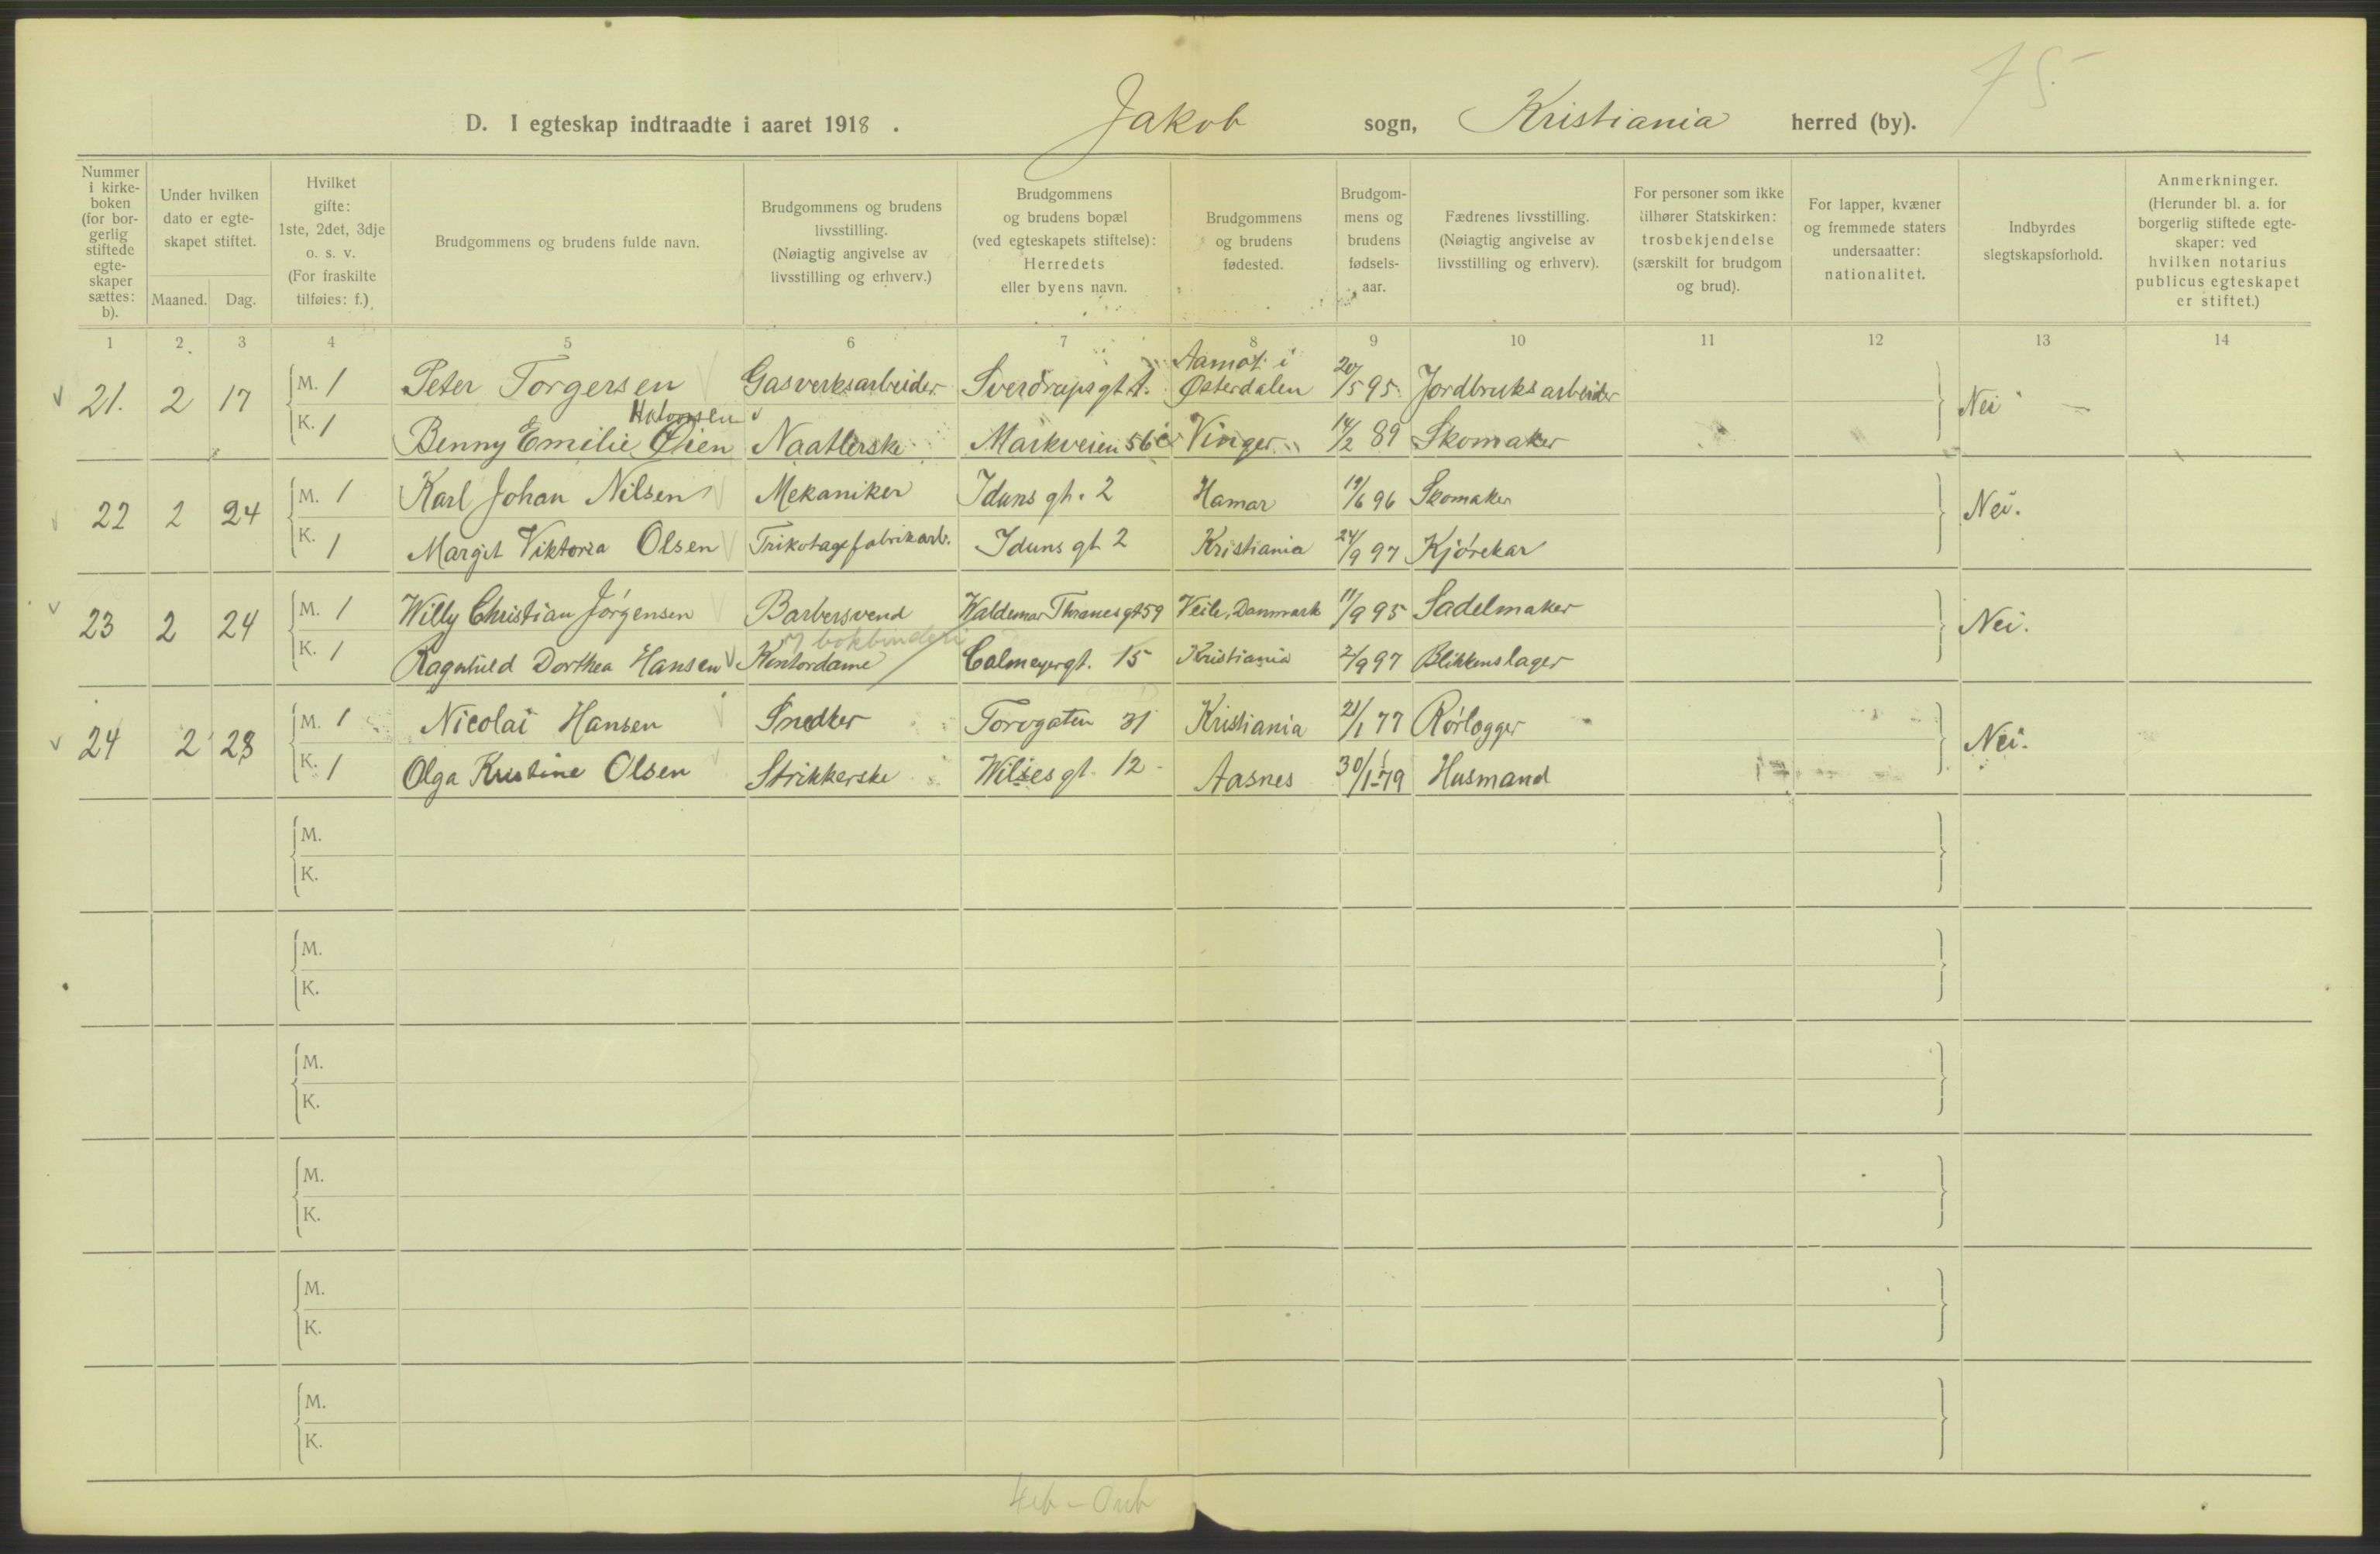 75
D. I egteskap indtraadte i aaret 1918 . Jakob sogn, Kristiania herred (by).
Nummer i kirke-boken (for bor-gerlig stiftede egte-skaper sættes: b).
Under hvilken dato er egte-skapet stiftet.
Maaned. Dag.
Hvilket gifte: 1ste, 2det, 3dje o. s. v. (For fraskilte tilføies: f.)
Brudgommens og brudens fulde navn.
Brudgommens og brudens livsstilling. (Nøiagtig angivelse av livsstilling og erhverv.)
Brudgommens og brudens bopæl (ved egteskapets stiftelse): Herredets eller byens navn.
Brudgommens og brudens fødested.
Brudgom-mens og brudens fødsels-aar.
Fædrenes livsstilling. (Nøiagtig angivelse av livsstilling og erhverv).
For personer som ikke tilhører Statskirken: trosbekjendelse (særskilt for brudgom og brud).
For lapper, kvæner og fremmede staters undersaatter: nationalitet.
Indbyrdes slegtskapsforhold.
Anmerkninger. (Herunder bl. a. for borgerlig stiftede egte-skaper: ved hvilken notarius publicus egteskapet er stiftet.)
1 2 3 4 5 6 7 8 9 10 11 12 13 14
21. 2 17 M. 1 Peter Torgersen Gasverksarbeider Sverdrupsgt. Aamot i Østerdalen 20/5 95 Jordbruksarbeider Nei —
K. 1 Benny Emilie Øien Halvorsen Naatlerske Markveien 56 c Vinger 14/2 89 Skomaker
22 2 24 M. 1 Karl Johan Nilsen Mekaniker Iduns gt. 2 Hamar 19/6 96 Skomaker Nei.
K. 1 Margit Viktoria Olsen Trikotagefabrikarb. Iduns gt 2 Kristiania 24/9 97 Kjörekar
23 2 24 M. 1 Willy Christian Jörgensen Barbersvend Waldemar Thranesgt 59 Veile, Danmark 11/9 95 Sadelmaker Nei.
K. 1 Ragnhild Dorthea Hansen Kontordame bokbinderi Calmeyergt. 15 Kristiania 2/9 97 Blikkenslager
24 2 28 M. 1 Nicolai Hansen Snedker Torvgaten 31 Kristiania 21/1 77 Rörlogger Nei.
K. 1 Olga Kristine Olsen Strikkerske Wilses gt. 12 Aasnes 30/1 79 Husmand
M.
K.
M.
K.
M.
K.
M.
K.
M.
K.
M.
K.